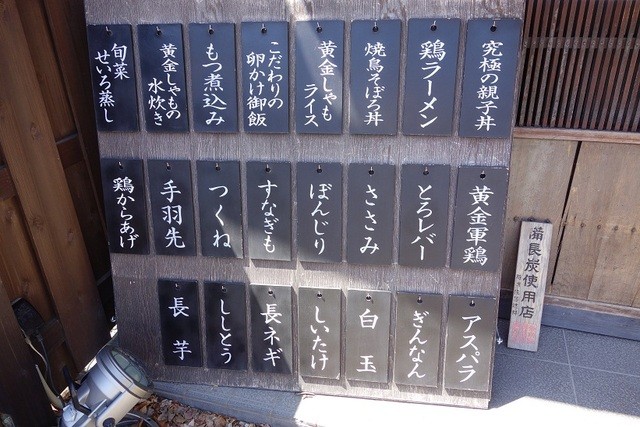 究極の親子丼
鶏ラーメン
焼鳥そぼろ丼
黄金しゃも
ライス
こだわりの
卵かけ御飯
もつ煮込み
黄金しゃもの
水炊き
旬菜
せいろ蒸し
黄金軍鶏
とろレバー
ささみ
ぼんじり
すなぎも
つくね
手羽先
鶏からあげ
アスパラ
ぎんなん
白玉
しいたけ
長ネギ
ししとう
長芋
備長炭使用店